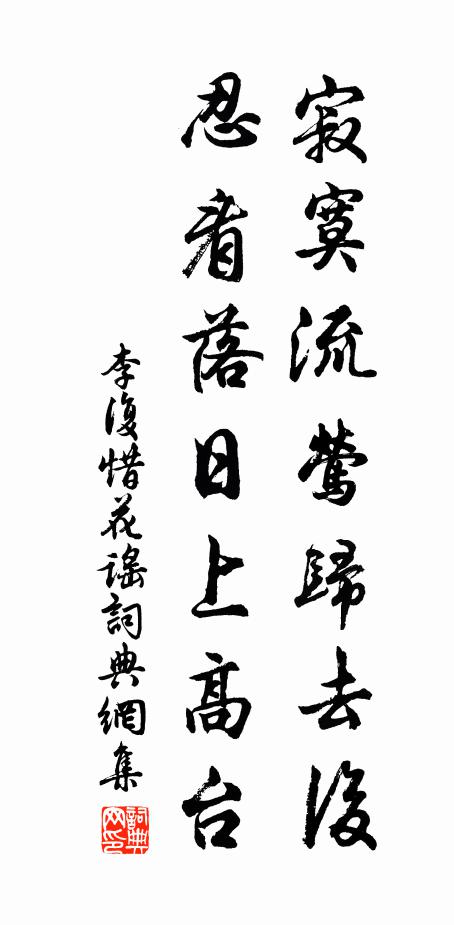 寂寞流鶯歸去後
忍看落日上高台
李復惜花謠詞典網集
詞典網印